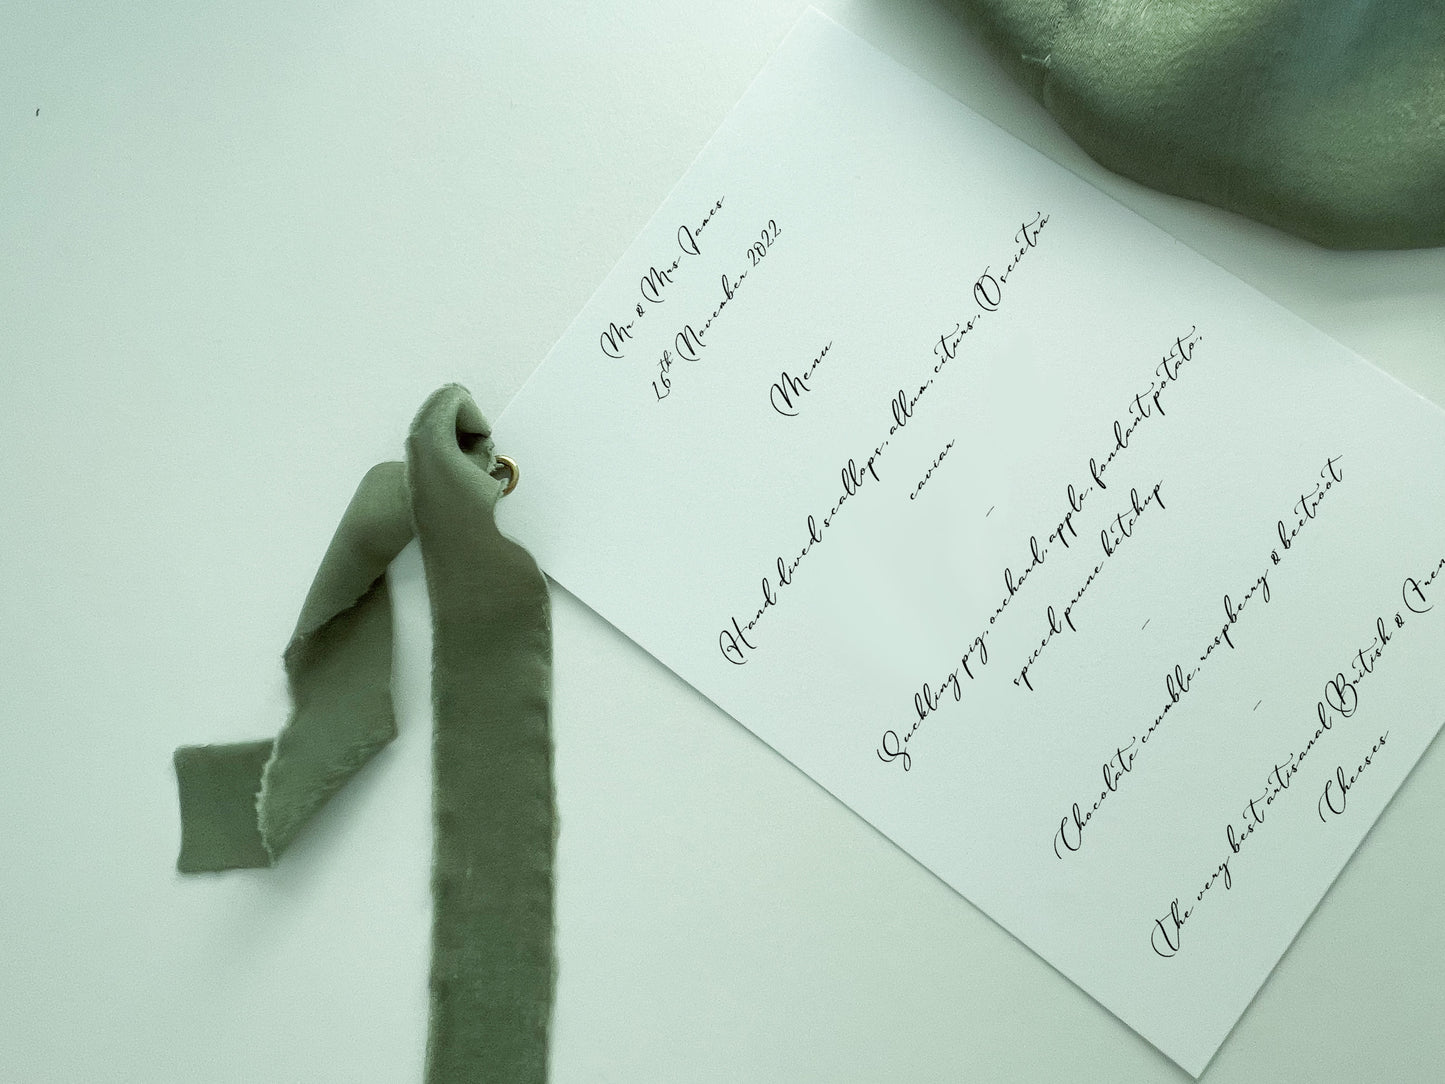 Mr & Mrs James
16th November 2022
Menu
Hand dived scallops, allum, citurs, Oscietra
caviar
-
Suckling pig, orchard, apple, fondant potato,
spiced prune ketchup
-
Chocolate crumble, raspberry & beetroot
-
The very best artisanal British & Fren
Cheeses